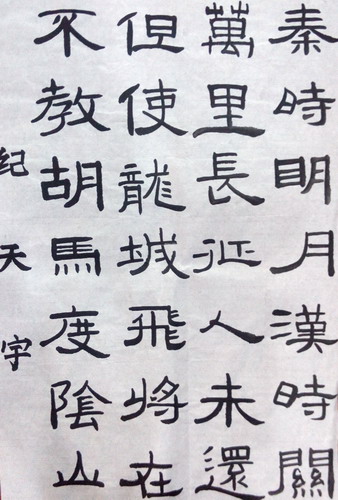 秦時明月漢時關
萬里長征人未還
但使龍城飛將在
不教胡馬度陰山
纪天宇